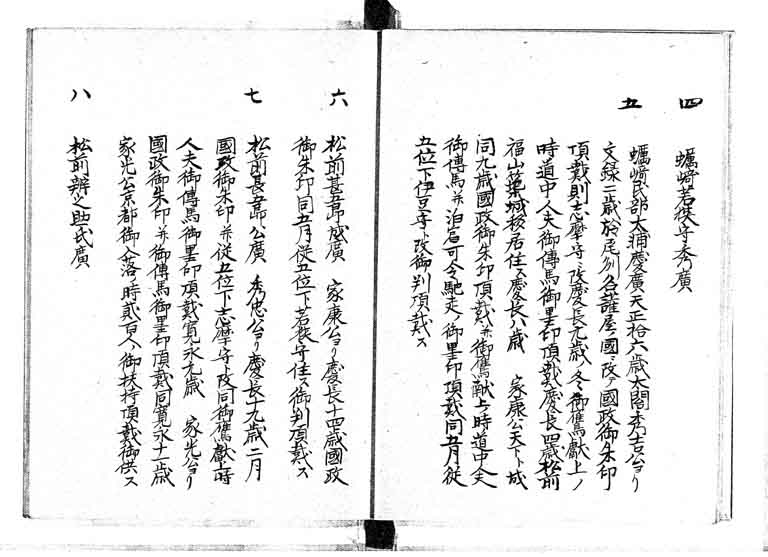 四
蠣﨑若狭守秀廣
五
蠣﨑民部太浦慶廣天正拾六歳太閤秀吉公ヨリ
文録二歳於尾州名護屋ノ國ニ改テ國政御朱印
頂戴則志摩守ニ改慶長九歳ノ冬御鷹献上ノ
時道中人夫御傳馬御墨印頂戴慶長四歳松前
福山築城移居住ス慶長八歳 家康公天下ト成
同九歳國政御朱印頂戴并御鷹献上ノ時道中人夫
御傳馬并泊宿可令馳走ノ御墨印頂戴同五月従
五位下伊豆守ト改御判頂戴ス
六
松前甚五郎盛廣 家康公ヨリ慶長十四歳國政
御朱印同五月従五位下若狭守任ス御判頂戴ス
七
松前長五郎公廣 秀忠公ヨリ慶長十九歳二月
國政御朱印并従五位下志摩守ト改同御鷹献上時
人夫御傳馬御墨印頂戴寛永九歳 家光公ヨリ
國政御朱印并御傳馬御墨印頂戴同寛永十一歳
家光公京都御入洛ノ時貳百人ノ御扶持頂戴御供ス
八
松前辨之助氏廣